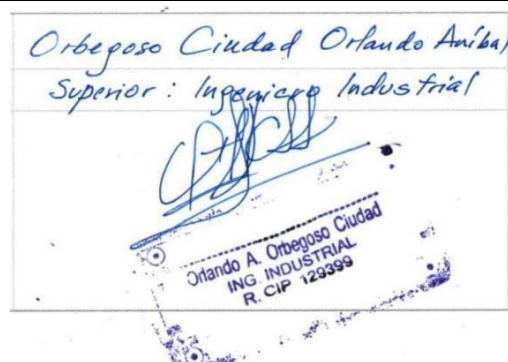 Orbegoso Ciudad Orlando Aníbal
Superior : Ingeniero Industrial
Orlando A. Orbegoso Ciudad
ING. INDUSTRIAL
R. CIP 129399